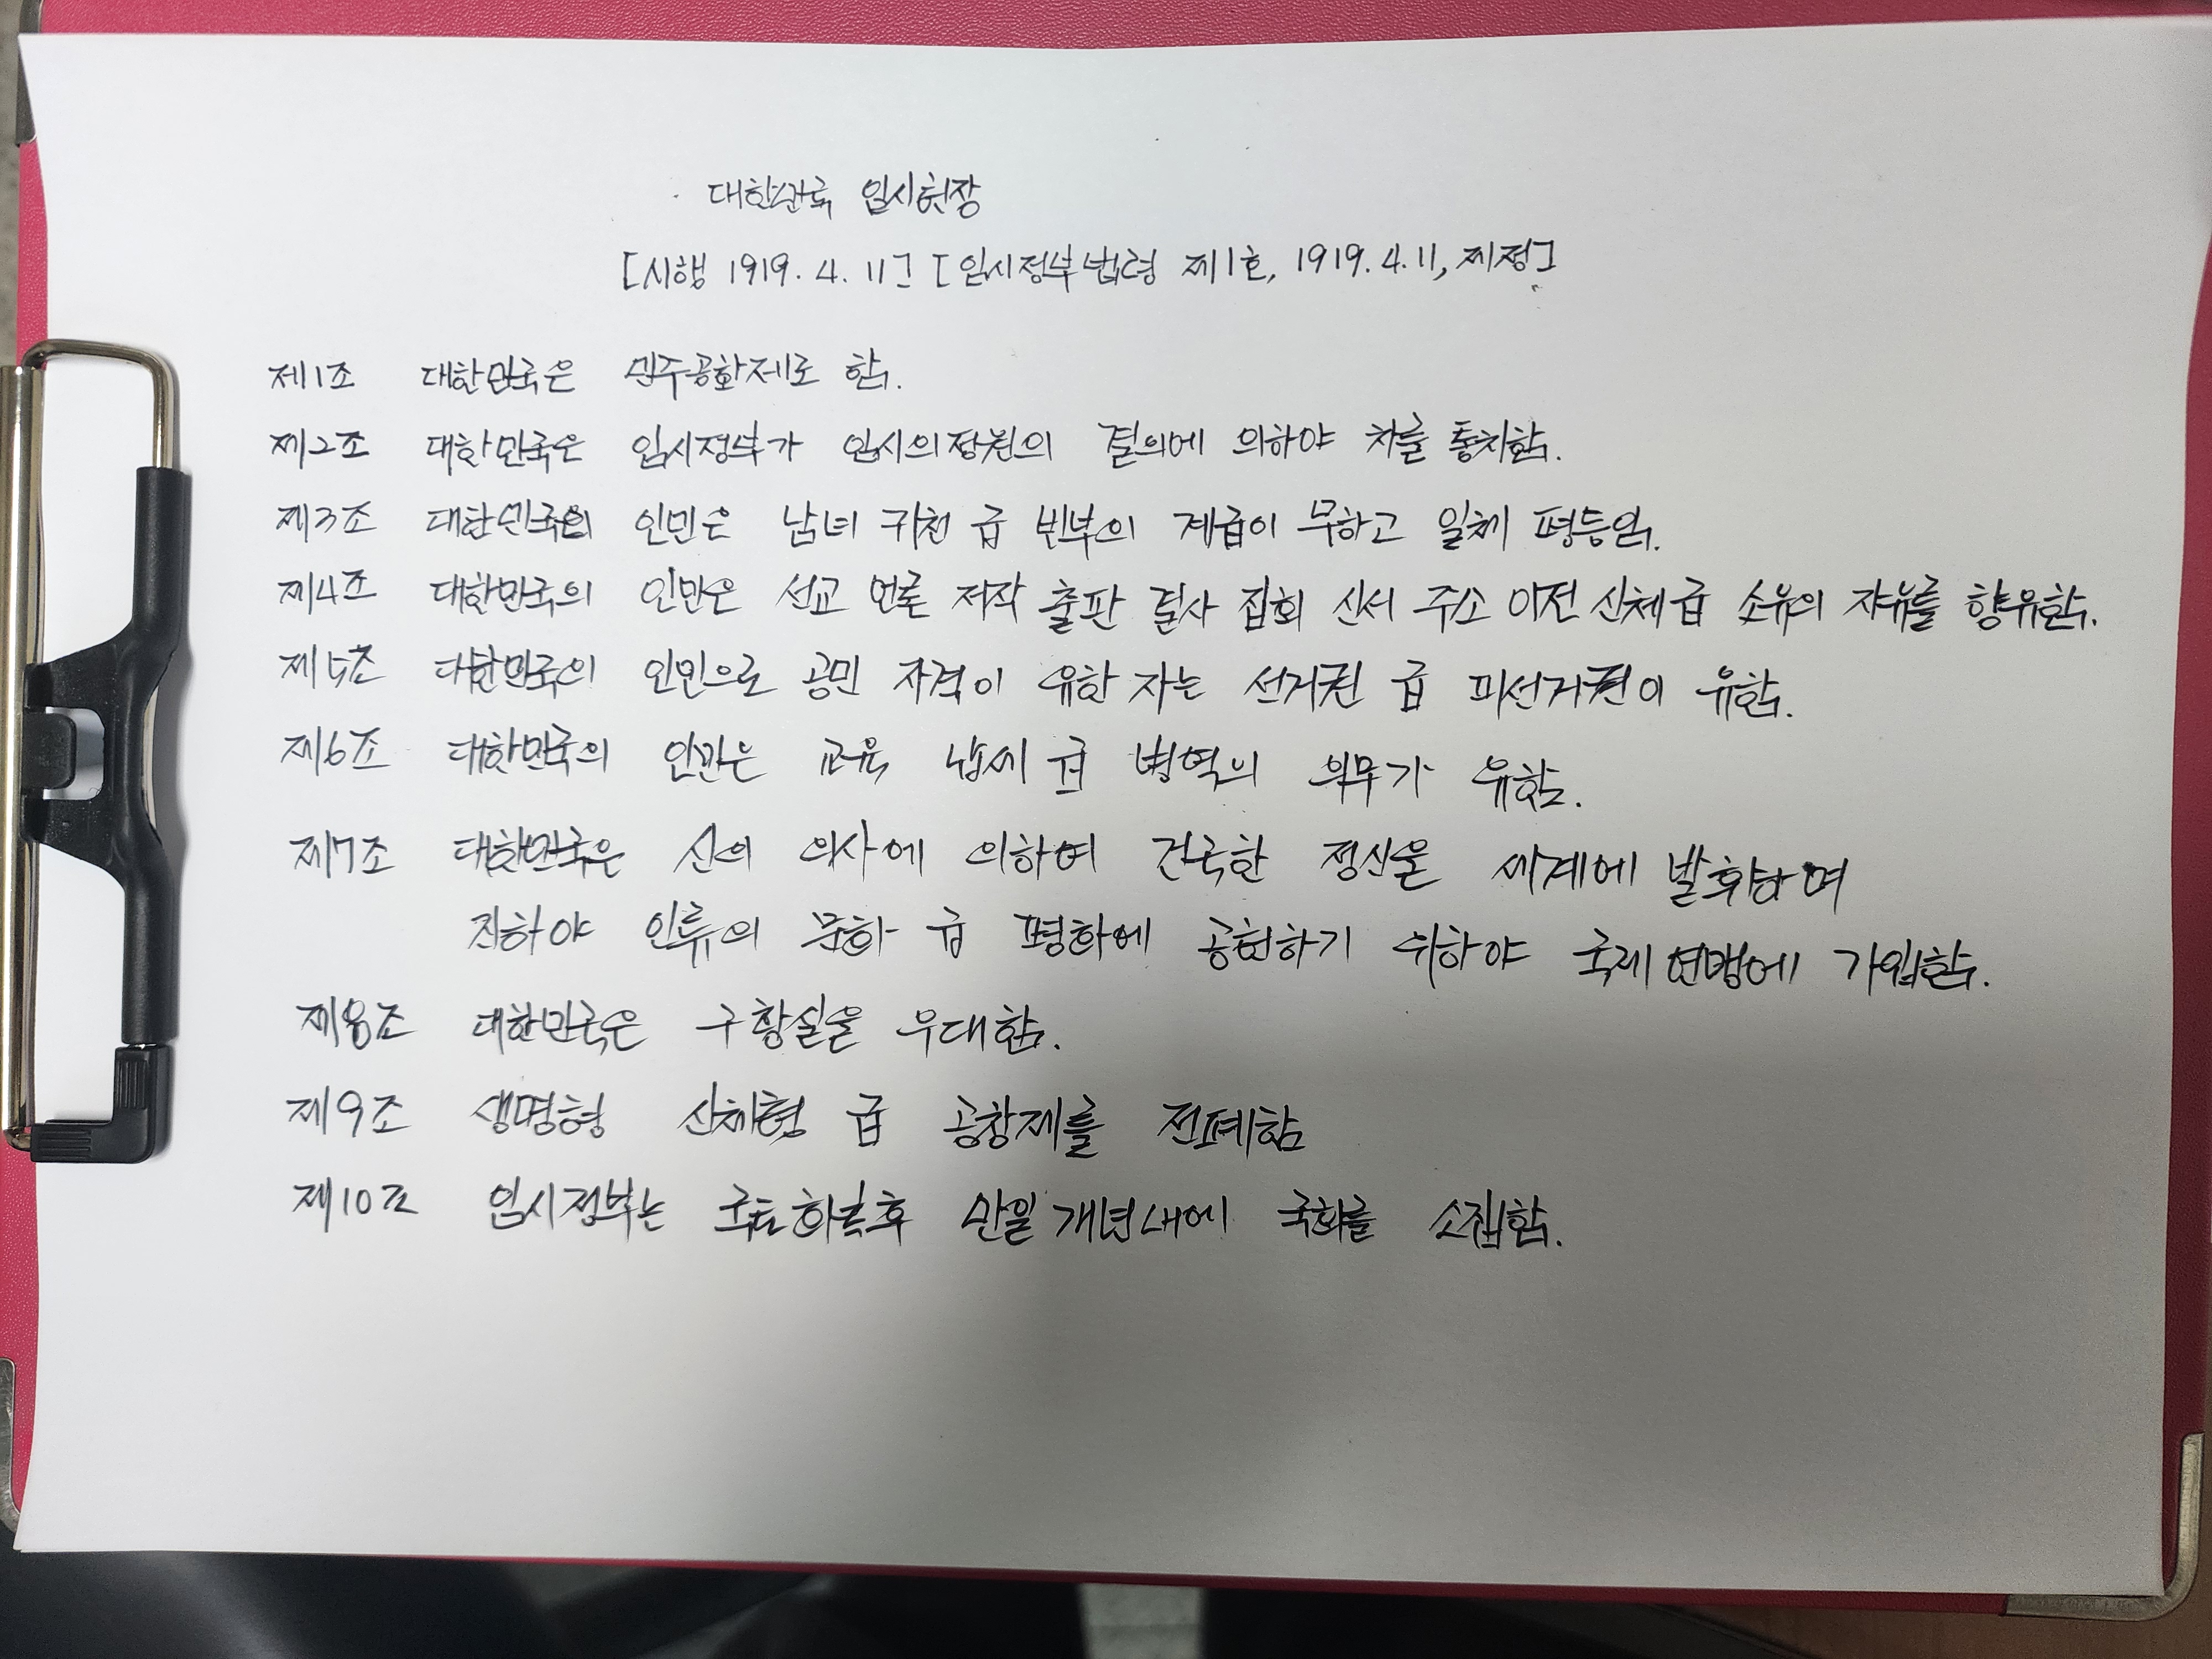 대한민국 임시헌장
[시행 1919. 4. 11] [임시정부법령 제1호, 1919. 4. 11, 제정]
제1조 대한민국은 민주공화제로 함.
제2조 대한민국은 임시정부가 임시의정원의 결의에 의하야 차를 통치함.
제3조 대한민국의 인민은 남녀 귀천 급 빈부의 계급이 무하고 일체 평등임.
제4조 대한민국의 인민은 선교 언론 저작 출판 결사 집회 신서 주소 이전 신체 급 소유의 자유를 향유함.
제5조 대한민국의 인민으로 공민 자격이 유한 자는 선거권 급 피선거권이 유함.
제6조 대한민국의 인민은 교육 납세 급 병역의 의무가 유함.
제7조 대한민국은 신의 의사에 의하여 건국한 정신을 세계에 발휘하며
진하야 인류의 문화 급 평화에 공헌하기 위하야 국제연맹에 가입함.
제8조 대한민국은 구황실을 우대함.
제9조 생명형 신체형 급 공창제를 전폐함
제10조 임시정부는 국토회복후 만일개년내에 국회를 소집함.